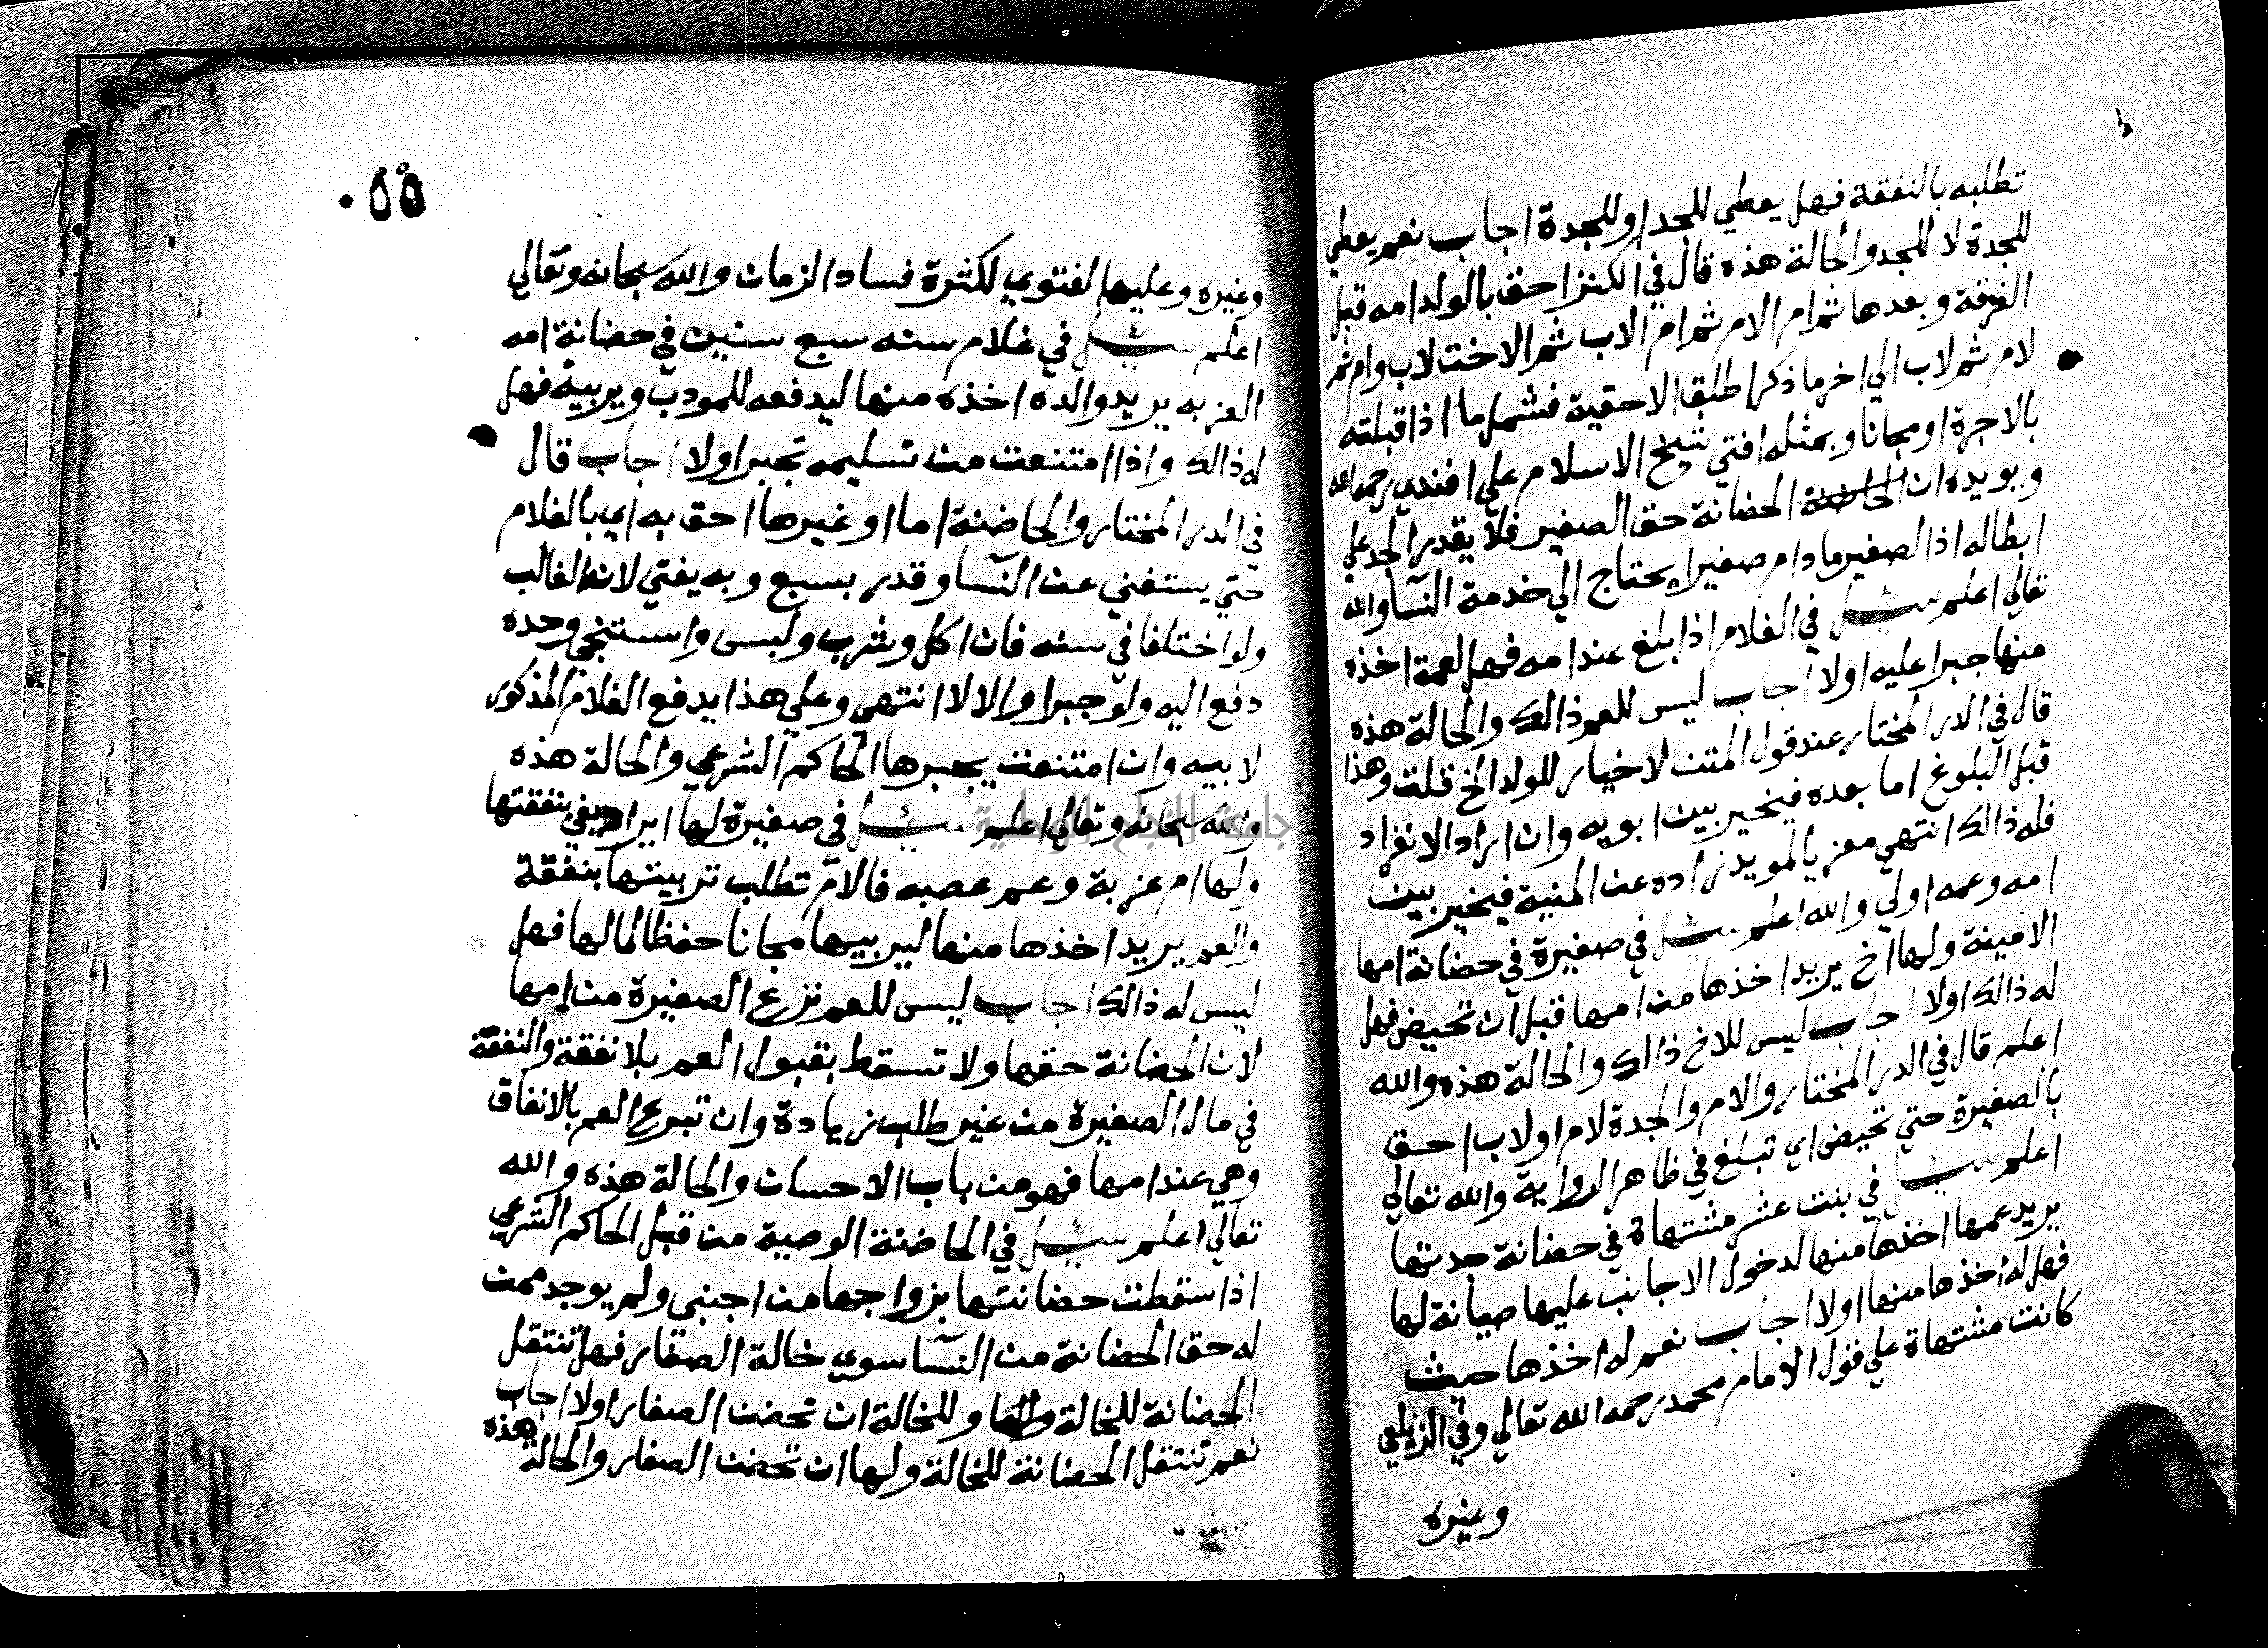 تطلبه بالنفقة فهل يعطي للجد او للجدة اجاب نعم يعطي
للجدة لا للجد والحالة هذه قال في الكنز احق بالولد امه قبل
الفرقة وبعدها ثم ام الام ثم ام الاب ثم الاخت لاب وام ثم
لام ثم لاب الي اخر ما ذكر اطلق الاحقية فشمل ما اذا قبلته
بالاجرة او مجانا وبمثله افتي شيخ الاسلام علي افندي رحمه الله
ويويده ان الحضانة حق الصغير فلا يقدر الجد علي
ابطاله اذ الصغير ما دام صغيرا يحتاج الي خدمة النسآ والله
تعالي اعلم سئل في الغلام اذا بلغ عند امه فهل لعمه اخذه
منها جبرا عليه اولا اجاب ليس للعم ذالك والحالة هذه
قال في الدر المختار عند قول المتن لا خيار للولد الخ قلت وهذا
قبل البلوغ اما بعده فيخير بين ابويه وان اراد الانفراد
فله ذالك انتهي معزيا للمويد زاده عن المنية فيخير بين
امه وعمه اولي والله اعلم سئل في صغيرة في حضانة امها
الامينة ولها اخ يريد اخذها من امها قبل ان تحيض فهل
له ذالك اولا اجاب ليس للاخ ذالك والحالة هذه والله
اعلم قال في الدر المختار والام والجدة لام او لاب احق
بالصغيرة حتي تحيض اي تبلغ في ظاهر الرواية والله تعالي
اعلم سئل في بنت عشر مشتهاة في حضانة جدتها
يريد عمها اخذها منها لدخول الاجانب عليها صيانة لها
فهل له اخذها منها اولا اجاب نعم له اخذها حيث
كانت مشتهاة علي قول الامام محمد رحمه الله تعالي وفي الزيلعي
وغيره
٥٥٠
وغيره وعليها الفتوي لكثرة فساد الزمان والله سبحانه وتعالي
اعلم سئل في غلام سنه سبع سنين في حضانة امه
العزبه يريد والده اخذه منها ليدفعه للمودب ويربيه فهل
له ذالك واذا امتنعت من تسليمه تجبر اولا اجاب قال
في الدر المختار والحاضنة اما او غيرها احق به اي بالغلام
حتي يستغني عن النسآ وقدر بسبع وبه يفتي لانه الغالب
ولو اختلفا في سنه فان اكل وشرب ولبس واستنجي وحده
دفع اليه ولو جبرا والا لا انتهي وعلي هذا يدفع الغلام المذكور
لابيه وان امتنعت يجبرها الحاكم الشرعي والحالة هذه
والله سبحانه وتعالي اعلم سئل في صغيرة لها ايراد يفي بنفقتها
ولها ام عزبة وعم عصبه فالام تطلب تربيتها بنفقة
والعم يريد اخذها منها ليربيها مجانا حفظا لمالها فهل
ليس له ذالك اجاب ليس للعم نزع الصغيرة من امها
لان الحضانة حقها ولا تسقط بقبول العم بلا نفقة والنفقة
في مال الصغيرة من غير طلب زيادة وان تبرع العم بالانفاق
وهي عند امها فهو من باب الاحسان والحالة هذه والله
تعالي اعلم سئل في الحاضنة الوصية من قبل الحاكم الشرعي
اذا سقطت حضانتها بزواجها من اجنبي ولم يوجد ممن
له حق الحضانة من النسآ سوي خالة الصغار فهل تنتقل
الحضانة للخالة وللخالة ان تحضن الصغار اولا اجاب
نعم تنتقل الحضانة للخالة ولها ان تحضن الصغار والحالة هذه